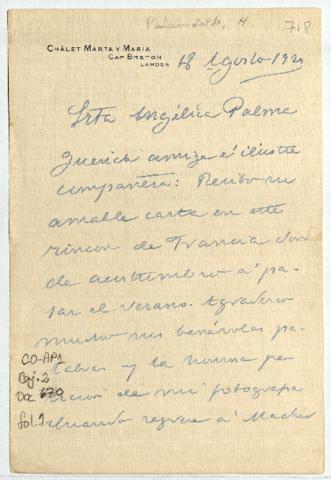 718
CHÂLET MARTA Y MARIA
CAP BRETON
LANDES
18 Agosto 1920
Srta Angélica Palma
Querida amiga é ilustre
compañera: Recibo su
amable carta en este
rincon de Francia don
de acostumbro á pa
sar el verano. Agradezco
mucho sus benévolas pa
labras y la honrosa pe
ticion de mi fotografia
Cuando regrese á Madrid
CO-AP1
Caj. 2
Doc 670
fol. 1